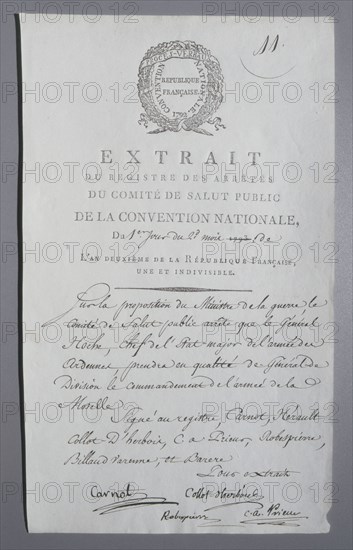 11.
CONVENTION NATIONALE
RÉPUBLIQUE
FRANÇAISE.
1792
EXTRAIT
DU REGISTRE DES ARRÊTÉS
DU COMITÉ DE SALUT PUBLIC
DE LA CONVENTION NATIONALE,
Du 1er Jour du 2d mois de
L'AN DEUXIÈME DE LA RÉPUBLIQUE FRANÇAISE,
UNE ET INDIVISIBLE.
Sur la proposition du Ministre de la guerre le
Comité de Salut public arrête que le Général
Hoche, Chef de l'Etat major de l'armée des
Ardennes, prendra en qualité de Général de
Division le commandement de l'armée de la
Moselle
Signé au registre, Carnot, Hérault
Collot D'herbois, C a Prieur, Robespierre,
Billaud Varenne, et Barere
Pour extrait
Carnot Collot d'herbois
Robespierre C. a. Prieur
PHOTO12